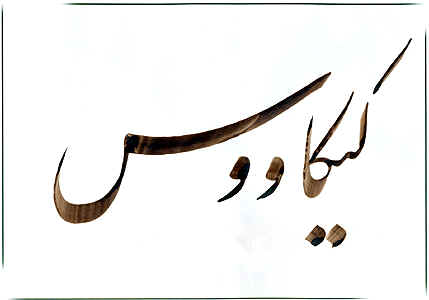 کیکاووس